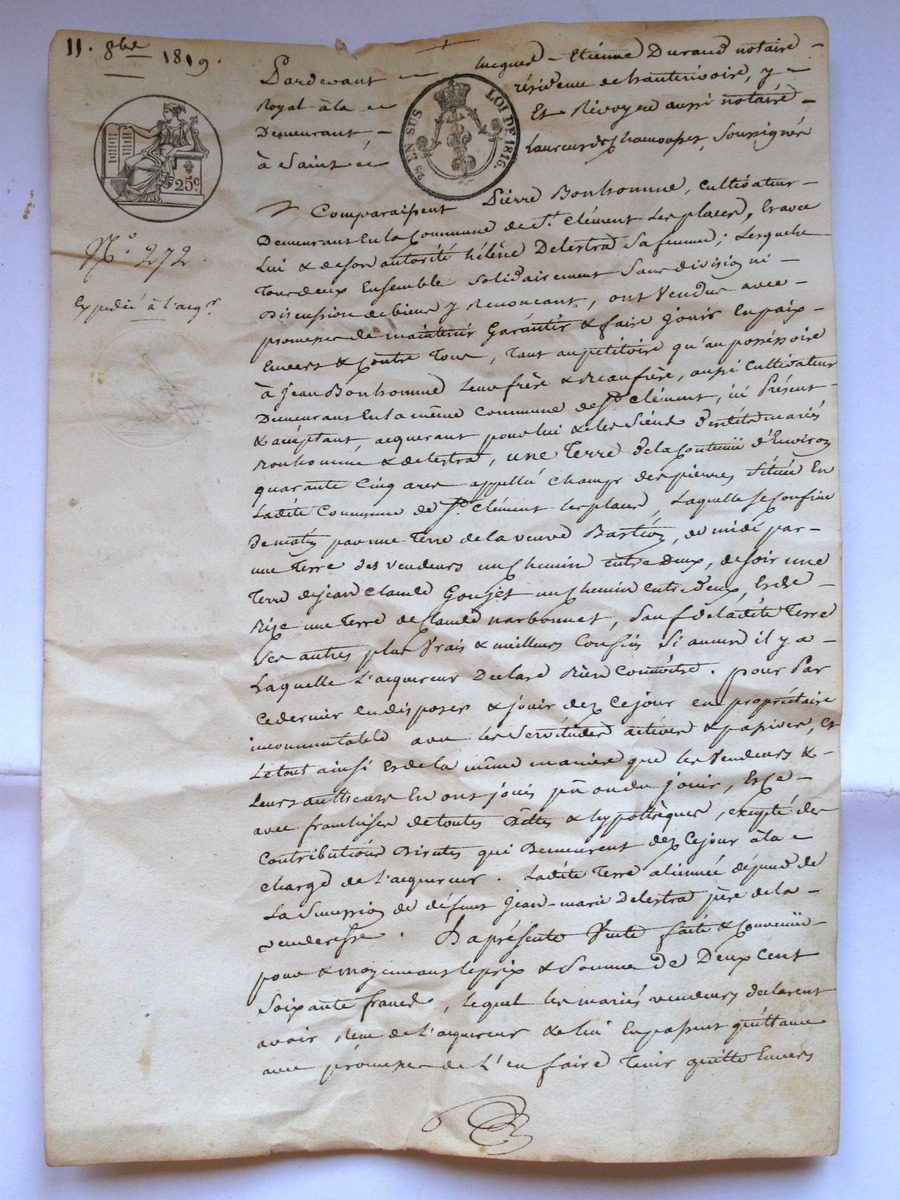 11. 8bre 1819.
Pardevant Jacques-Etienne Durand notaire
Royal à la résidence de hauterivoire, y
Demeurant Et Révoyen aussi notaire
à Saint Laurent de Chamousset, Soussignés
25 EN SUS LOI DE 1816.
25c
No. 272.
Expedié à l'acqr
Comparaissent Pierre Bonhomme, Cultivateur
Demeurant En la Commune de St. Clément les places, & avec
Lui & de son autorité hélène Delestra Sa femme; Lesquels
Tous deux Ensemble Solidairement Sans division ni
Discussion de biens y Renoncant, ont Vendus avec
promesse de maintenir Garantir & faire jouir En paix
Envers & Contre Tous, Tant au pétitoire qu'au posséssoire
à Jean Bonhomme Leur frère & Beaufrère, aussi Cultivateur
Demeurant En la même Commune de St. Clément, ici Présent
& acceptant, acquerant pour lui & les Siens desdits mariés
Bonhomme & delestra, une Terre de la Contenue d'Environ
quarante Cinq ares appellé Champ des pierres Située En
Ladite Commune de St. Clément les places, Laquelle Se Confine
De matin par une Terre de la veuve Bastion, de midi par
une Terre des vendeurs un Chemin entre deux, de Soir une
Terre de jean Claude Goujet un Chemin Entre deux, & de
Bize une Terre de Claude narbonnet, Sauf de ladite Terre
Ses autres plus Vrais & meilleurs Confins Si aucun il y a
Laquelle L'acquereur Declare Bien Connoitre. pour Par
Ce dernier En disposer & jouir dez Ce jour en propriétaire
incommutable avec les Servitudes actives & passives, Et
Le tout ainsi & de la même manière que les Vendeurs &
Leurs autheurs En ont jouis pû ou du jouir, & Ce
avec franchises de toutes dettes & hypothèques, excepté des
Contributions Directes qui Demeurent dez Ce jour à la
charge de l'acquereur. Ladite Terre aliennée dépend de
La Succession de défunt Jean-marie Delestra père de la
venderesse. La présente Vente faite & Convenüe
pour & moyennant le prix & Somme de Deux Cent
Soixante francs, lequel les mariés vendeurs declarent
avoir Recu de l'acquereur & lui En passent quittance
avec promesse de L'en faire Tenir quitte Envers